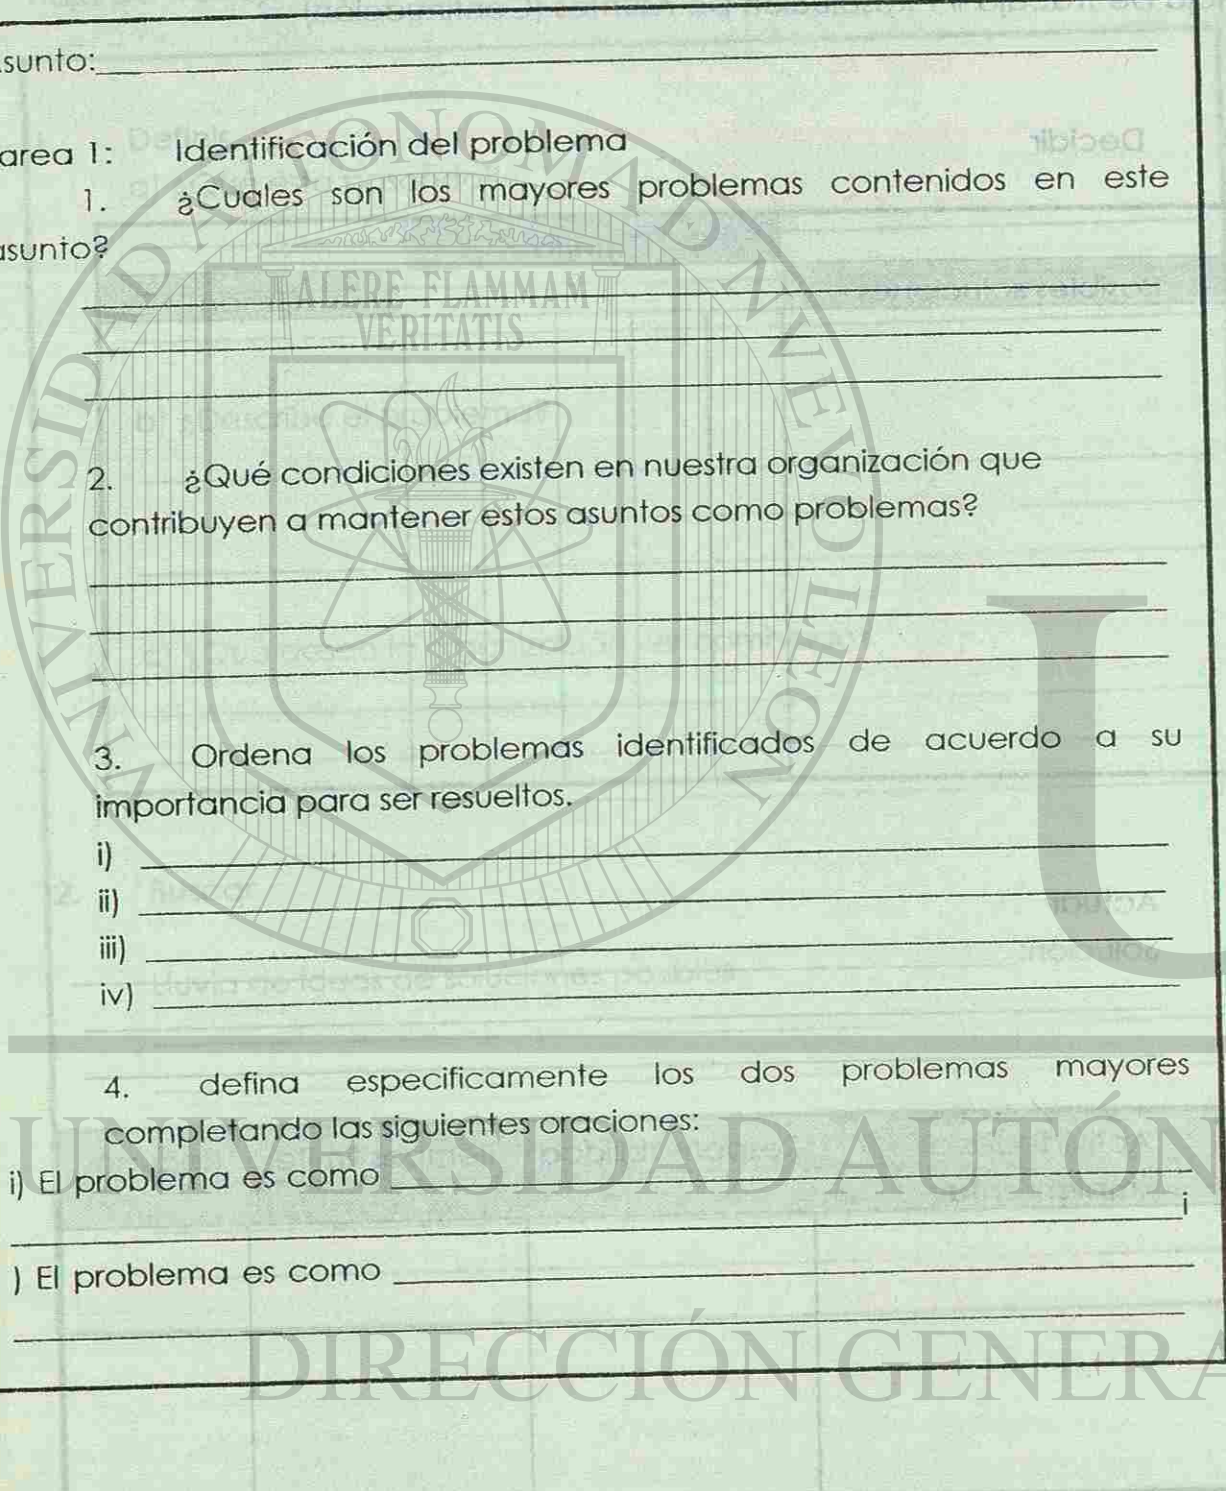 sunto:
area 1: Identificación del problema
1. ¿Cuales son los mayores problemas contenidos en este
asunto?
2. ¿Qué condiciones existen en nuestra organización que
contribuyen a mantener estos asuntos como problemas?
3. Ordena los problemas identificados de acuerdo a su
importancia para ser resueltos.
i)
ii)
iii)
iv)
4. defina especificamente los dos problemas mayores
completando las siguientes oraciones:
i) El problema es como
i
) El problema es como
UNIVERSIDAD AUTONOMA DE NUEVO LEON
ALERE FLAMMAM
VERITATIS
U
UNIVERSIDAD AUTÓN
DIRECCIÓN GENERA